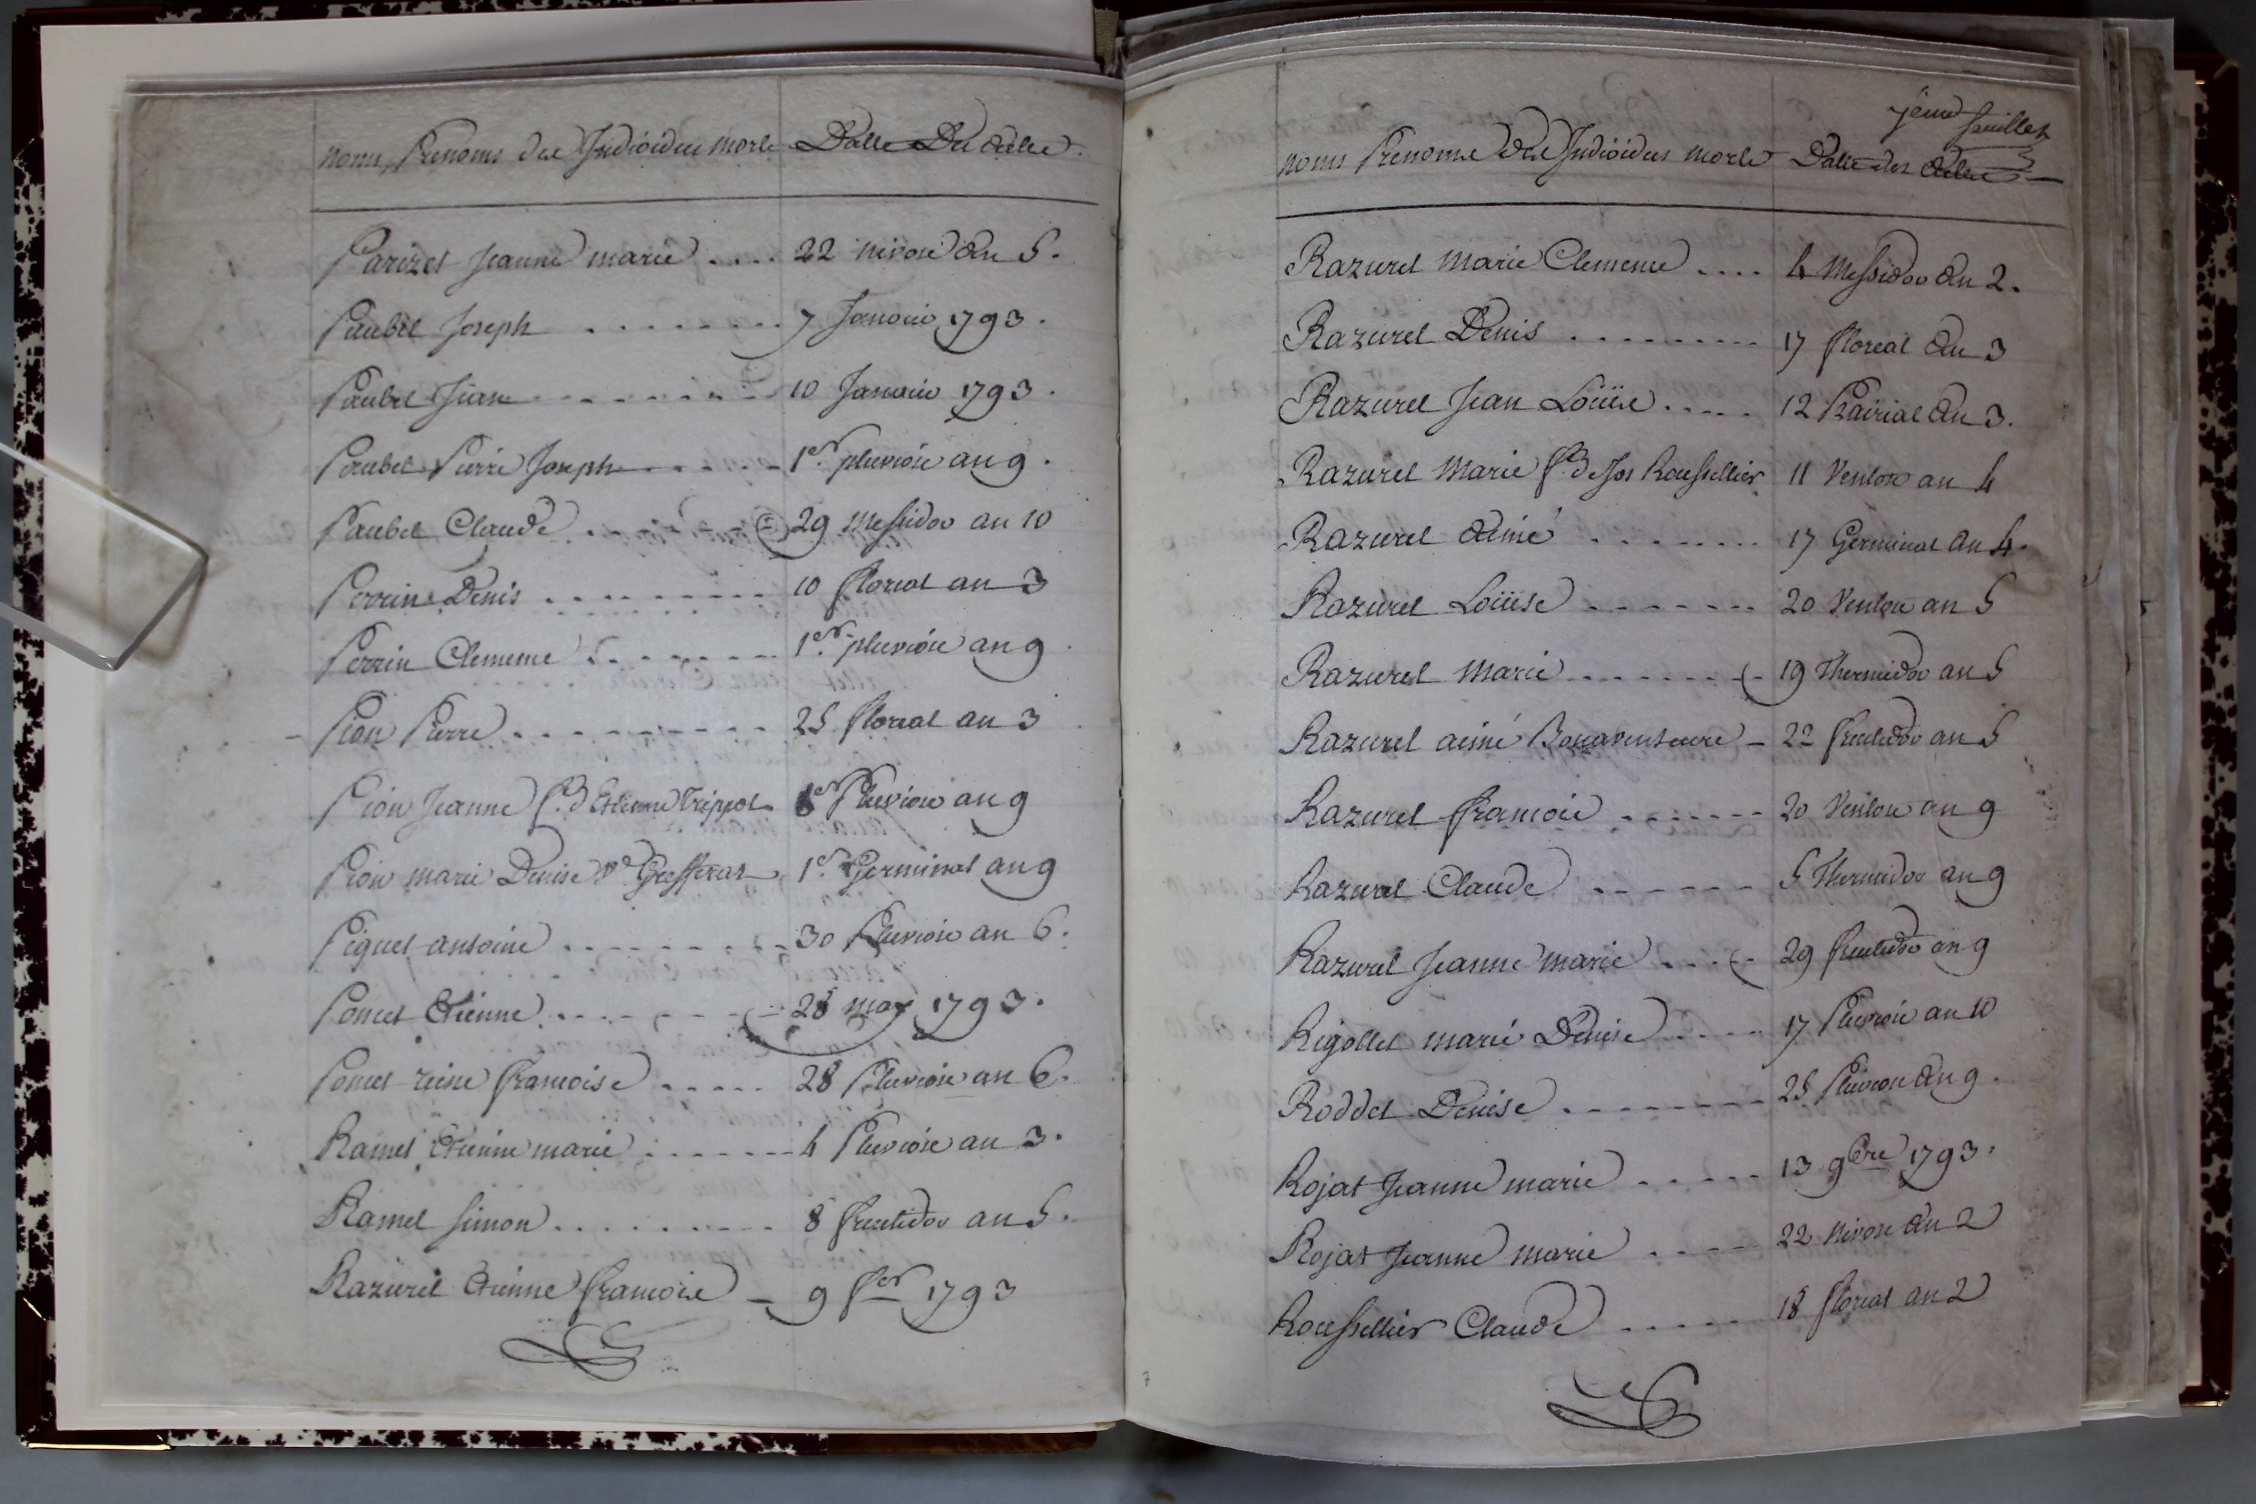 Noms, Prenoms des Individus morts Datte Des actes.
Parizet Jeanne marie .... 22 nivose an 5.
Paubel Joseph ........ 7 Janvier 1793.
Paubel Jean ........ 10 Janvier 1793.
Paubel Pierre Joseph ...... 1er pluviose an 9.
Paubel Claude ...... 29 Messidor an 10
Perrin Denis ......... 10 floreal an 3
Perrin Clemence ........ 1er pluviose an 9.
Pion Pierre ......... 25 floreal an 3
Pion Jeanne f.e d Etienne Trippoz 1er Pluviose an 9
Pion marie Denise v.e Grefferat 1er Germinal an 9
Piquet antoine ........ 30 Pluviose an 6.
Poncet Etienne ........ 28 may 1793.
Poncet reine francoise ..... 28 Pluviose an 6.
Ramel Etienne marie ....... 4 Pluviose an 3.
Ramel Simon ......... 8 fructidor an 5.
Razurel Etienne francoise — 9 fer 1793
7eme feuillet
Noms Prenoms des Individus morts Datte des actes —
Razurel Marie Clemence .... 4 Messidor an 2.
Razurel Denis ......... 17 floreal an 3
Razurel Jean Loüise ..... 12 Prairial an 3.
Razurel Marie f.e de Jos Roussellier 11 Ventose an 4
Razurel aimé ....... 17 Germinal an 4.
Razurel Loüise ....... 20 Ventose an 5
Razurel Marie ........ 19 Thermidor an 5
Razurel aimé Bonaventure — 22 fructidor an 5
Razurel francoise ....... 20 Ventose an 9
Razurel Claude ....... 5 Thermidor an 9
Razurel Jeanne marie .... 29 fructidor an 9
Rigollet marie Denise ..... 17 Pluviose an 10
Roddet Denise ........ 25 Pluviose an 9.
Rojat Jeanne marie ..... 13 9bre 1793.
Rojat Jeanne marie .... 22 nivose an 2
Roussellier Claude ..... 18 floreal an 2
7